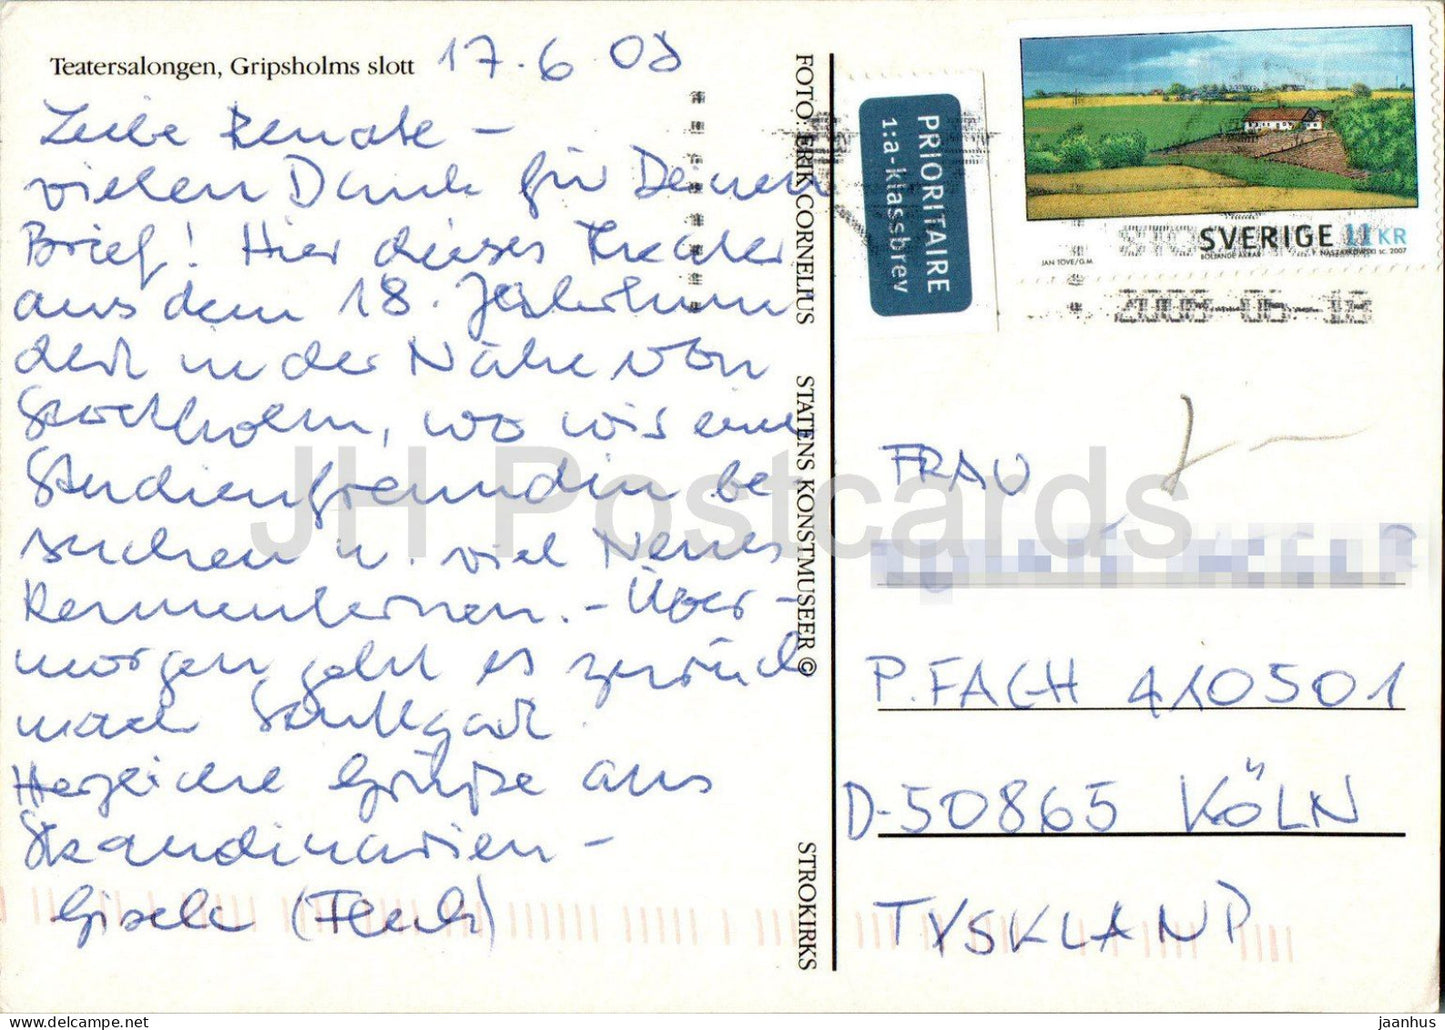 Teatersalongen, Gripsholms slott 17.6 08
Liebe Renate –
vielen Dank für Deinen
Brief! Hier dieses Theater
aus dem 18. Jahrhun
dert in der Nähe von
Stockholm, wo wir eine
Studienfreundin be-
suchen u. viel Neues
kennenlernen. – Über-
morgen geht es zurück
nach Stuttgart.
Herzliche Grüße aus
Skandinavien –
Gisela
FOTO: ERIK CORNELIUS STATENS KONSTMUSEER © STROKIRKS
PRIORITAIRE
1:a-klassbrev
SVERIGE 11 KR
JAN TOVE/G.M. BÖLJANDE ÅKRAR P. NASZARKOWSKI SC. 2007
2008-06-18
FRAU
P.FACH 410501
D-50865 KÖLN
TYSKLAND
JH Postcards
jaanhus - https://www.delcampe.net